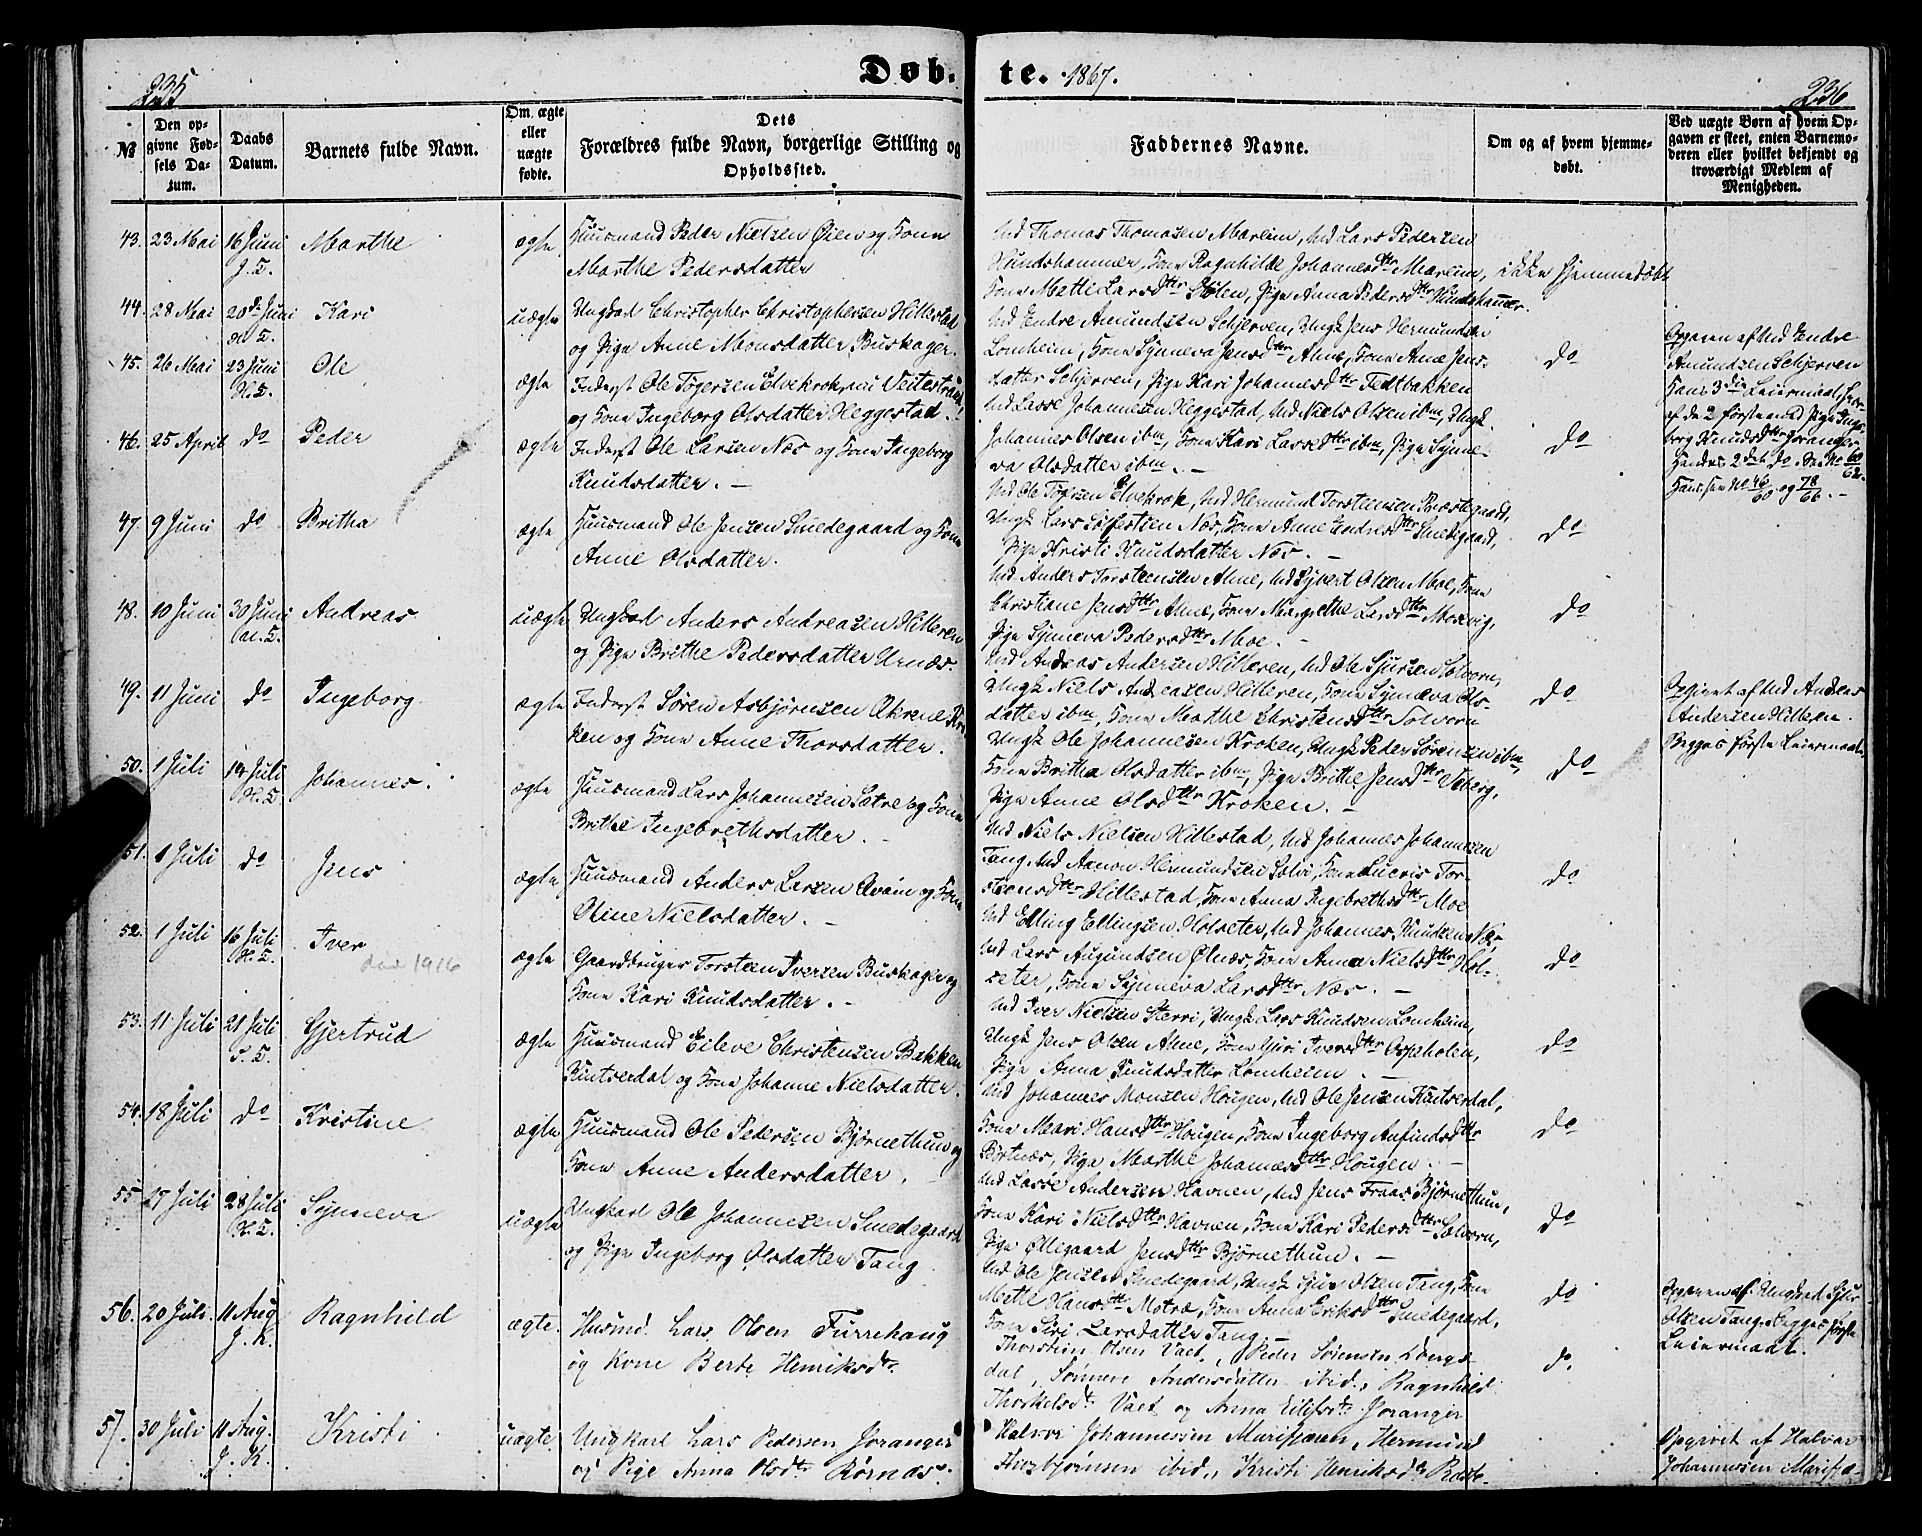 235
Døb-
te. 1867.
236
№
Den op-
givne Fød-
sels Da-
tum.
Daabs
Datum.
Barnets fulde Navn.
Om ægte
eller
uægte
fødte.
Dets
Forældres fulde Navn, borgerlige Stilling og
Opholdssted.
Faddernes Navne.
Om og af hvem hjemme-
døbt.
Ved uægte Børn af hvem Op-
gaven er skeet, enten Barnemo-
deren eller hvilket bekjendt og
troværdigt Medlem af
Menigheden.
43. 23 Mai 16 Juni Marthe ægte Huusmand Peder Nielsen Øien og Kone
Marthe Pedersdatter
Md Thomas Thomasen Mareim, Md Lars Pedersen
Hundshammer, Kone Ragnhilde Johannesdtr Mareim, ikke hjemmedøbt
Kone Mette Larsdtr Pige Anna Pedersdtr Hundshamer.
44. 28 Mai 20de Juni Kari uægte Ungkarl Christopher Christophersen Hillestad
og Pige Anne Monsdatter Buskager.
Md Endre Amundsen Schjerven, Ungk Jens Hermundsen
Lomheim, Kone Synneva Jensdtr Alme, Kone Ane Jens-
datter Schjerven, Pige Kari Johannesdtr Feltbakken
do
Opgaven af Md Endre
Amundsen Schjerven
45. 26 Mai 23 Juni Ole ægte Inderst Ole Tøgersen Elvekrok, nu Veitestrand
og Kone Ingeborg Olsdatter Heggestad.
Md Lasse Johannesen Heggestad, Md Niels Olsen ibm, Ungk.
Johannes Olsen ibm, Kone Kari Lassedtr ibm, Pige Synne-
va Olsdatter ibm. –
do
46. 25 April do Peder ægte Inderst Ole Larsen Næs og Kone Ingeborg
Knudsdatter. –
Md Ole Tøgersen Elvekrok, Md Hermund Torstensen Præstegaard,
Ungk Lars Sjofertsen Næs, Kone Anne Endresdtr Smedegaard,
Pige Kristi Knudsdatter Næs. –
do
47. 9 Juni do Britha ægte Huusmand Ole Jensen Smedegaard og Kone
Anne Olsdatter.
Md Anders Torstensen Alme, Md Syvert Olsen Moe, Kone
Christiane Jensdtr Alme, Kone Margrethe Larsdtr
Pige Synneva Pedersdtr Moe. –
do
48. 10 Juni 30 Juni Andreas uægte Ungkarl Anders Andreasen Hilleren
og Pige Brithe Pedersdatter Urnæs.
Md Andreas Andersen Hilleren, Md Ole Sjursen Solvorn,
Ungk Niels Andreasen Hilleren, Kone Synneva Ols-
datter ibm, Kone Marthe Christensdtr Solvorn
do
Opgivet af Md Andreas
Andersen Hilleren.
Begges første Leiermaal
49. 11 Juni do Ingeborg ægte Inderst Søren Asbjørnsen Økrene Kro-
ken og Kone Anne Thorsdatter.
Ungk Ole Johannesen Kroken, Ungk Peder Sørensen ibm,
Kone Britha Olsdatter ibm, Pige Brithe Jensdtr
Pige Anne Olsdtr Kroken. –
do
50. 1 Juli 14 Juli Johannes. ægte Huusmand Lars Johannesen Sætre og Kone
Brithe Ingebrethsdatter. –
Md Niels Nielsen Hillestad, Md Johannes Johannesen
Tang, Md Aamon Hermundsen Solvi, Kone Lucris Tor-
stensdtr Hillestad, Kone Anna Ingebrethsdtr Moe
do
51. 1 Juli do Jens ægte Huusmand Anders Larsen Qvam og Kone
Oline Nielsdatter. –
Md Elling Ellingsen Holseter, Md Johannes Knudsen Næs,
Md Lars Augundsen Ølnæs, Kone Anna Nielsdtr Hol-
seter, Kone Synneva Larsdtr Næs. –
do
52. 1 Juli 16 Juli Iver ægte Gaardbruger Torsteen Iversen Buskager og
Kone Kari Knudsdatter. –
1916
Md Iver Nielsen Sterri, Ungk Lars Knudsen Lomheim,
Ungk Jens Olsen Alme, Kone Guri Iversdtr Ospeholen,
Pige Anna Knudsdatter Lomheim. –
do
53. 11 Juli 21 Juli Gjertrud ægte Huusmand Eileve Christensen Bakken
Kintserdal og Kone Johanne Nielsdatter.
Md Johannes Monsen Hougen, Md Ole Jensen Kintserdal,
Kone Mari Hansdtr Hougen, Kone Ingeborg Anfindsdtr
Børtnæs, Pige Marthe Johannesdtr Hougen. –
do
54. 18 Juli do Kristine ægte Huusmand Ole Pedersen Bjørnethun og
Kone Anne Andersdatter.
Md Lasse Andersen Havnen, Md Jens Fraas Bjørnethun,
Kone Kari Nielsdtr Havnen, Kone Kari Pedersdtr Solvorn,
Pige Øllegaard Jensdtr Bjørnethun. –
do
55. 17 Juli 28 Juli Synneva uægte Ungkarl Ole Johannesen Smedegaard
og Pige Ingeborg Olsdatter Tang
Md Ole Jensen Smedegaard, Ungk Sjur Olsen Tang, Kone
Mette Hansdtr Kone Anna Eriksdtr Smedegaard,
Kone Siri Larsdatter Tang. –
do
Opgaven af Ungkarl Sjur
Olsen Tang. Begges første
Leiermaal.
56. 20 Juli 11 Aug J. K. Ragnhild ægte. Husmd. Lars Olsen Furrehaug
og Kone Berte Henriksdtr.
Thorstein Olsen Vaet, Peder Sørensen
dal, Synneve Andersdatter ibid., Ragnhild
Thorkelsdt Vaet og Anna Eilifsdtr Joranger
do.
57. 30 Juli 11 Aug. J. K. Kristi uægte Ungkarl Lars Pedersen Joranger
og Pige Anna Olsdtr Rørnæs.
Halvor Johannessen Marifjæren, Hermund
ibid., Kristi Henriksdtr
Opgivet af Halvor
Johannessen Marifjæ-